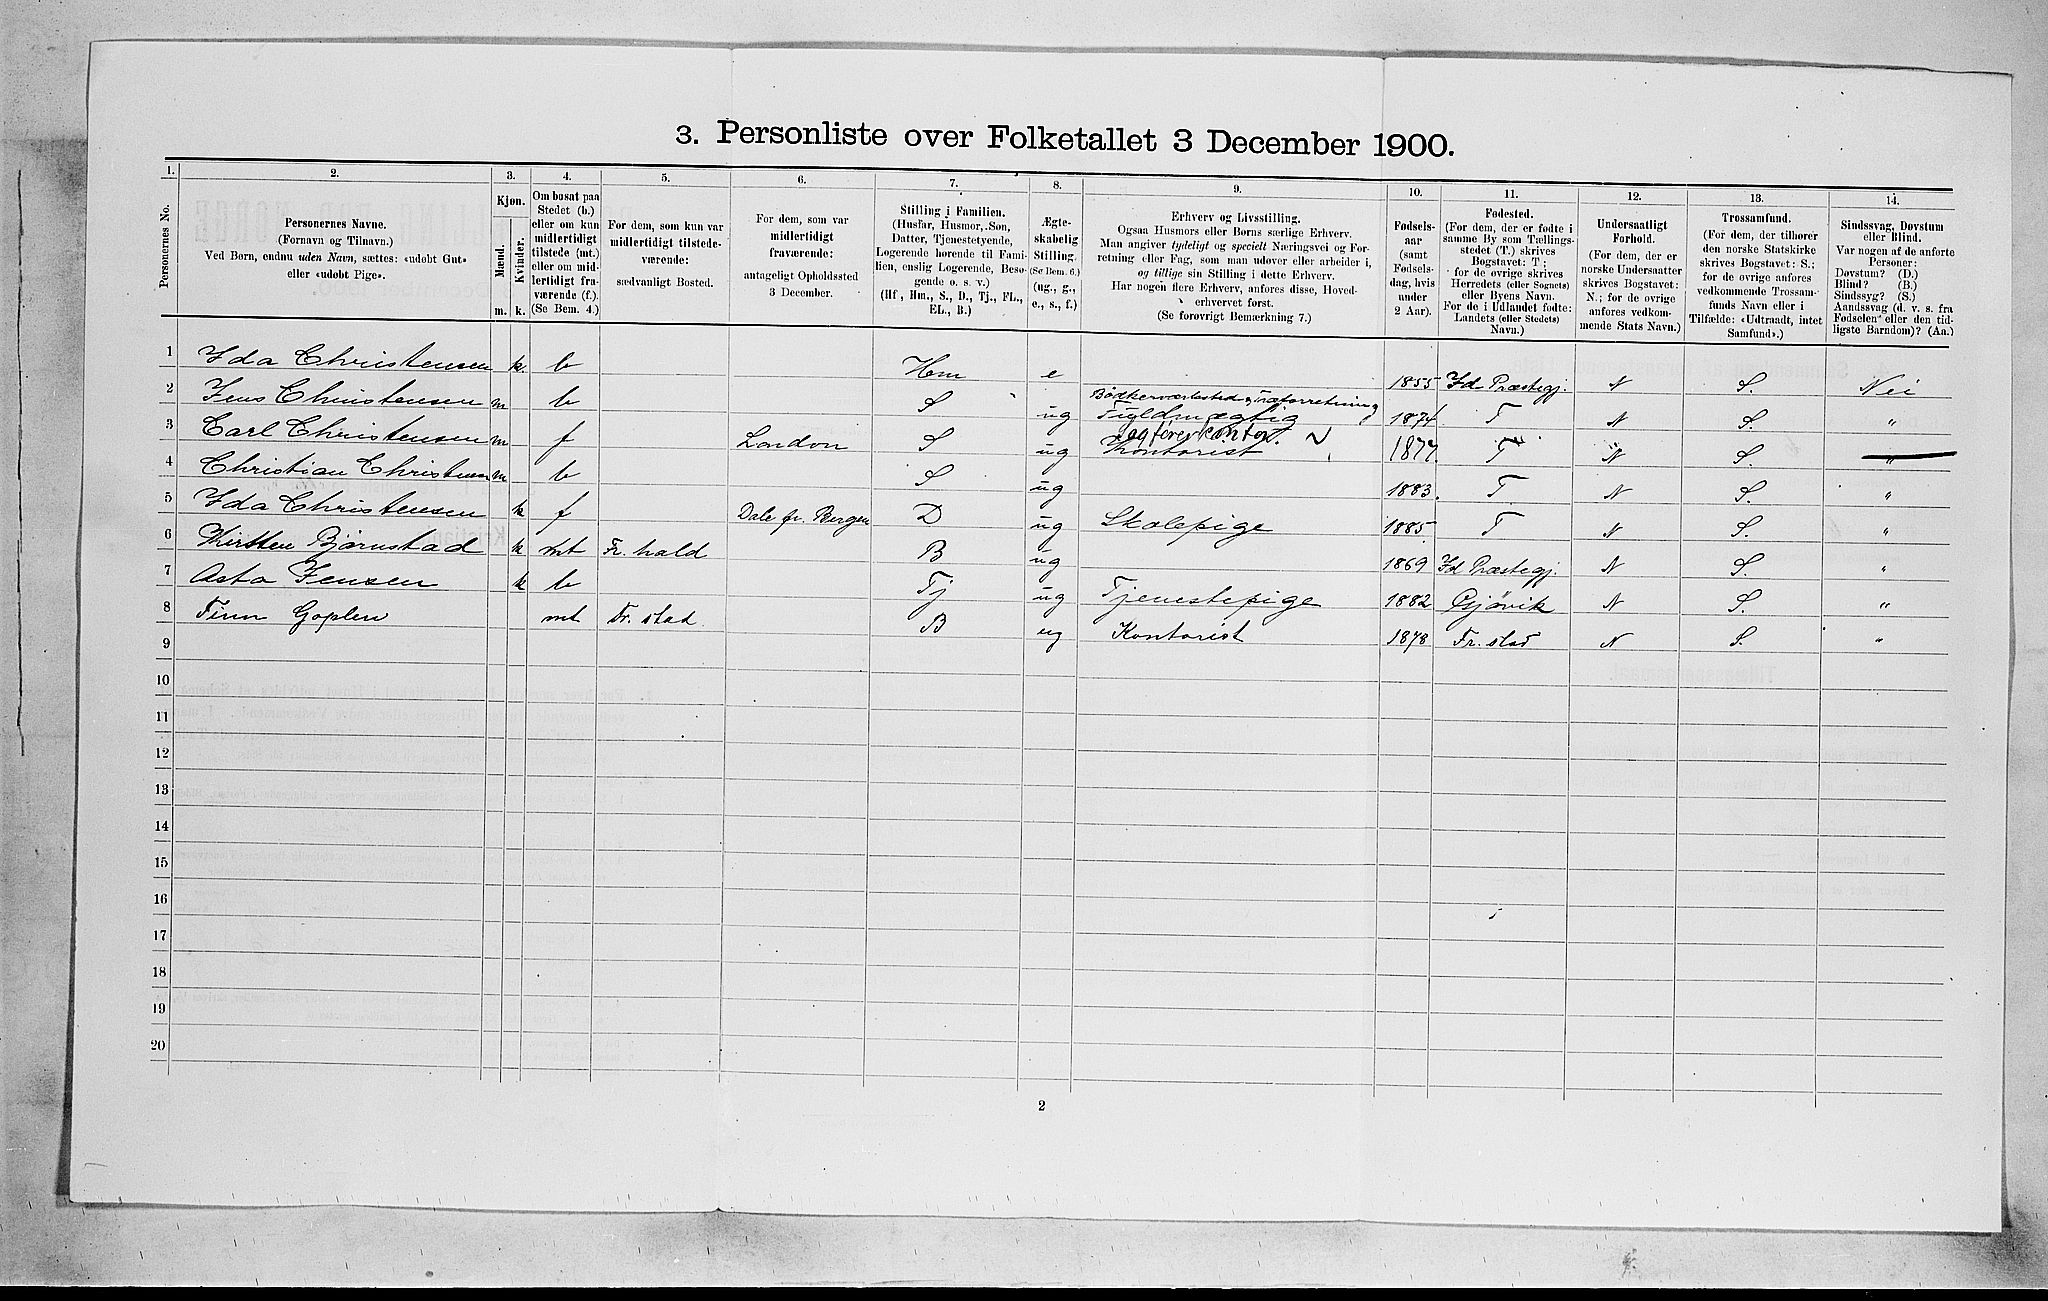 3. Personliste over Folketallet 3 December 1900.
1. 2. 3. 4. 5. 6. 7. 8. 9. 10. 11. 12. 13. 14.
Personernes No.
Personernes Navne.
(Fornavn og Tilnavn.)
Ved Børn, endnu uden Navn, sættes: «udøbt Gut»
eller «udøbt Pige».
Kjøn.
Mænd.
Kvinder.
m. k.
Om bosat paa
Stedet (b.)
eller om kun
midlertidigt
tilstede (mt.)
eller om mid-
lertidigt fra-
værende (f.).
(Se Bem. 4.)
For dem, som kun var
midlertidigt tilstede-
værende:
sædvanligt Bosted.
For dem, som var
midlertidigt
fraværende:
antageligt Opholdssted
3 December.
Stilling i Familien.
(Husfar, Husmor, Søn,
Datter, Tjenestetyende,
Logerende hørende til Fami-
lien, enslig Logerende, Besø-
gende o. s. v.)
(Hf., Hm., S., D., Tj., FL.,
EL., B.)
Ægte-
skabelig
Stilling.
(Se Bem. 6.)
(ug., g.,
e., s., f.)
Erhverv og Livsstilling.
Ogsaa Husmors eller Børns særlige Erhverv.
Man angiver tydeligt og specielt Næringsvei og For-
retning eller Fag, som man udøver eller arbeider i,
og tillige sin Stilling i dette Erhverv.
Har nogen flere Erhverv, anføres disse, Hoved-
erhvervet først.
(Se forøvrigt Bemærkning 7.)
Fødsels-
aar
(samt
Fødsels-
dag, hvis
under
2 Aar).
Fødested.
(For dem, der er fødte i
samme By som Tællings-
stedet (T.) skrives
Bogstavet: T;
for de øvrige skrives
Herredets (eller Sognets)
eller Byens Navn.
For de i Udlandet fødte:
Landets (eller Stedets)
Navn.)
Undersaatligt
Forhold.
(For dem, der er
norske Undersaatter
skrives Bogstavet:
N.; for de øvrige
anføres vedkom-
mende Stats Navn.)
Trossamfund.
(For dem, der tilhører
den norske Statskirke
skrives Bogstavet: S.;
for de øvrige anføres
vedkommende Trossam-
funds Navn eller i
Tilfælde: «Udtraadt, intet
Samfund».)
Sindssvag, Døvstum
eller Blind.
Var nogen af de anførte
Personer:
Døvstum? (D.)
Blind? (B.)
Sindssyg? (S.)
Aandssvag (d. v. s. fra
Fødselen eller den tid-
ligste Barndom)? (Aa.)
1 Ida Christensen k. b Hm e 1855 Id Præstegj. N S. Nei
2 Jens Christensen m b S ug Fuldmægtig 1874 T N S. "
3 Carl Christensen m f London S ug Kontorist 1877. T N S. "
4 Christian Christensen m b S ug 1883. T N S. "
5 Ida Christensen k f Dale pr. Bergen D ug Skolepige 1885. T N S. "
6 Kirsten Bjørnstad k mt Fr. hald B ug 1869 Id Præstegj. N S. "
7 Asta Jensen k b Tj ug Tjenestepige 1882 Gjøvik N S. "
8 Finn Goplen mt Fr. stad. B ug Kontorist 1878 Fr. stad N S. "
9
10
11
12
13
14
15
16
17
18
19
20
2